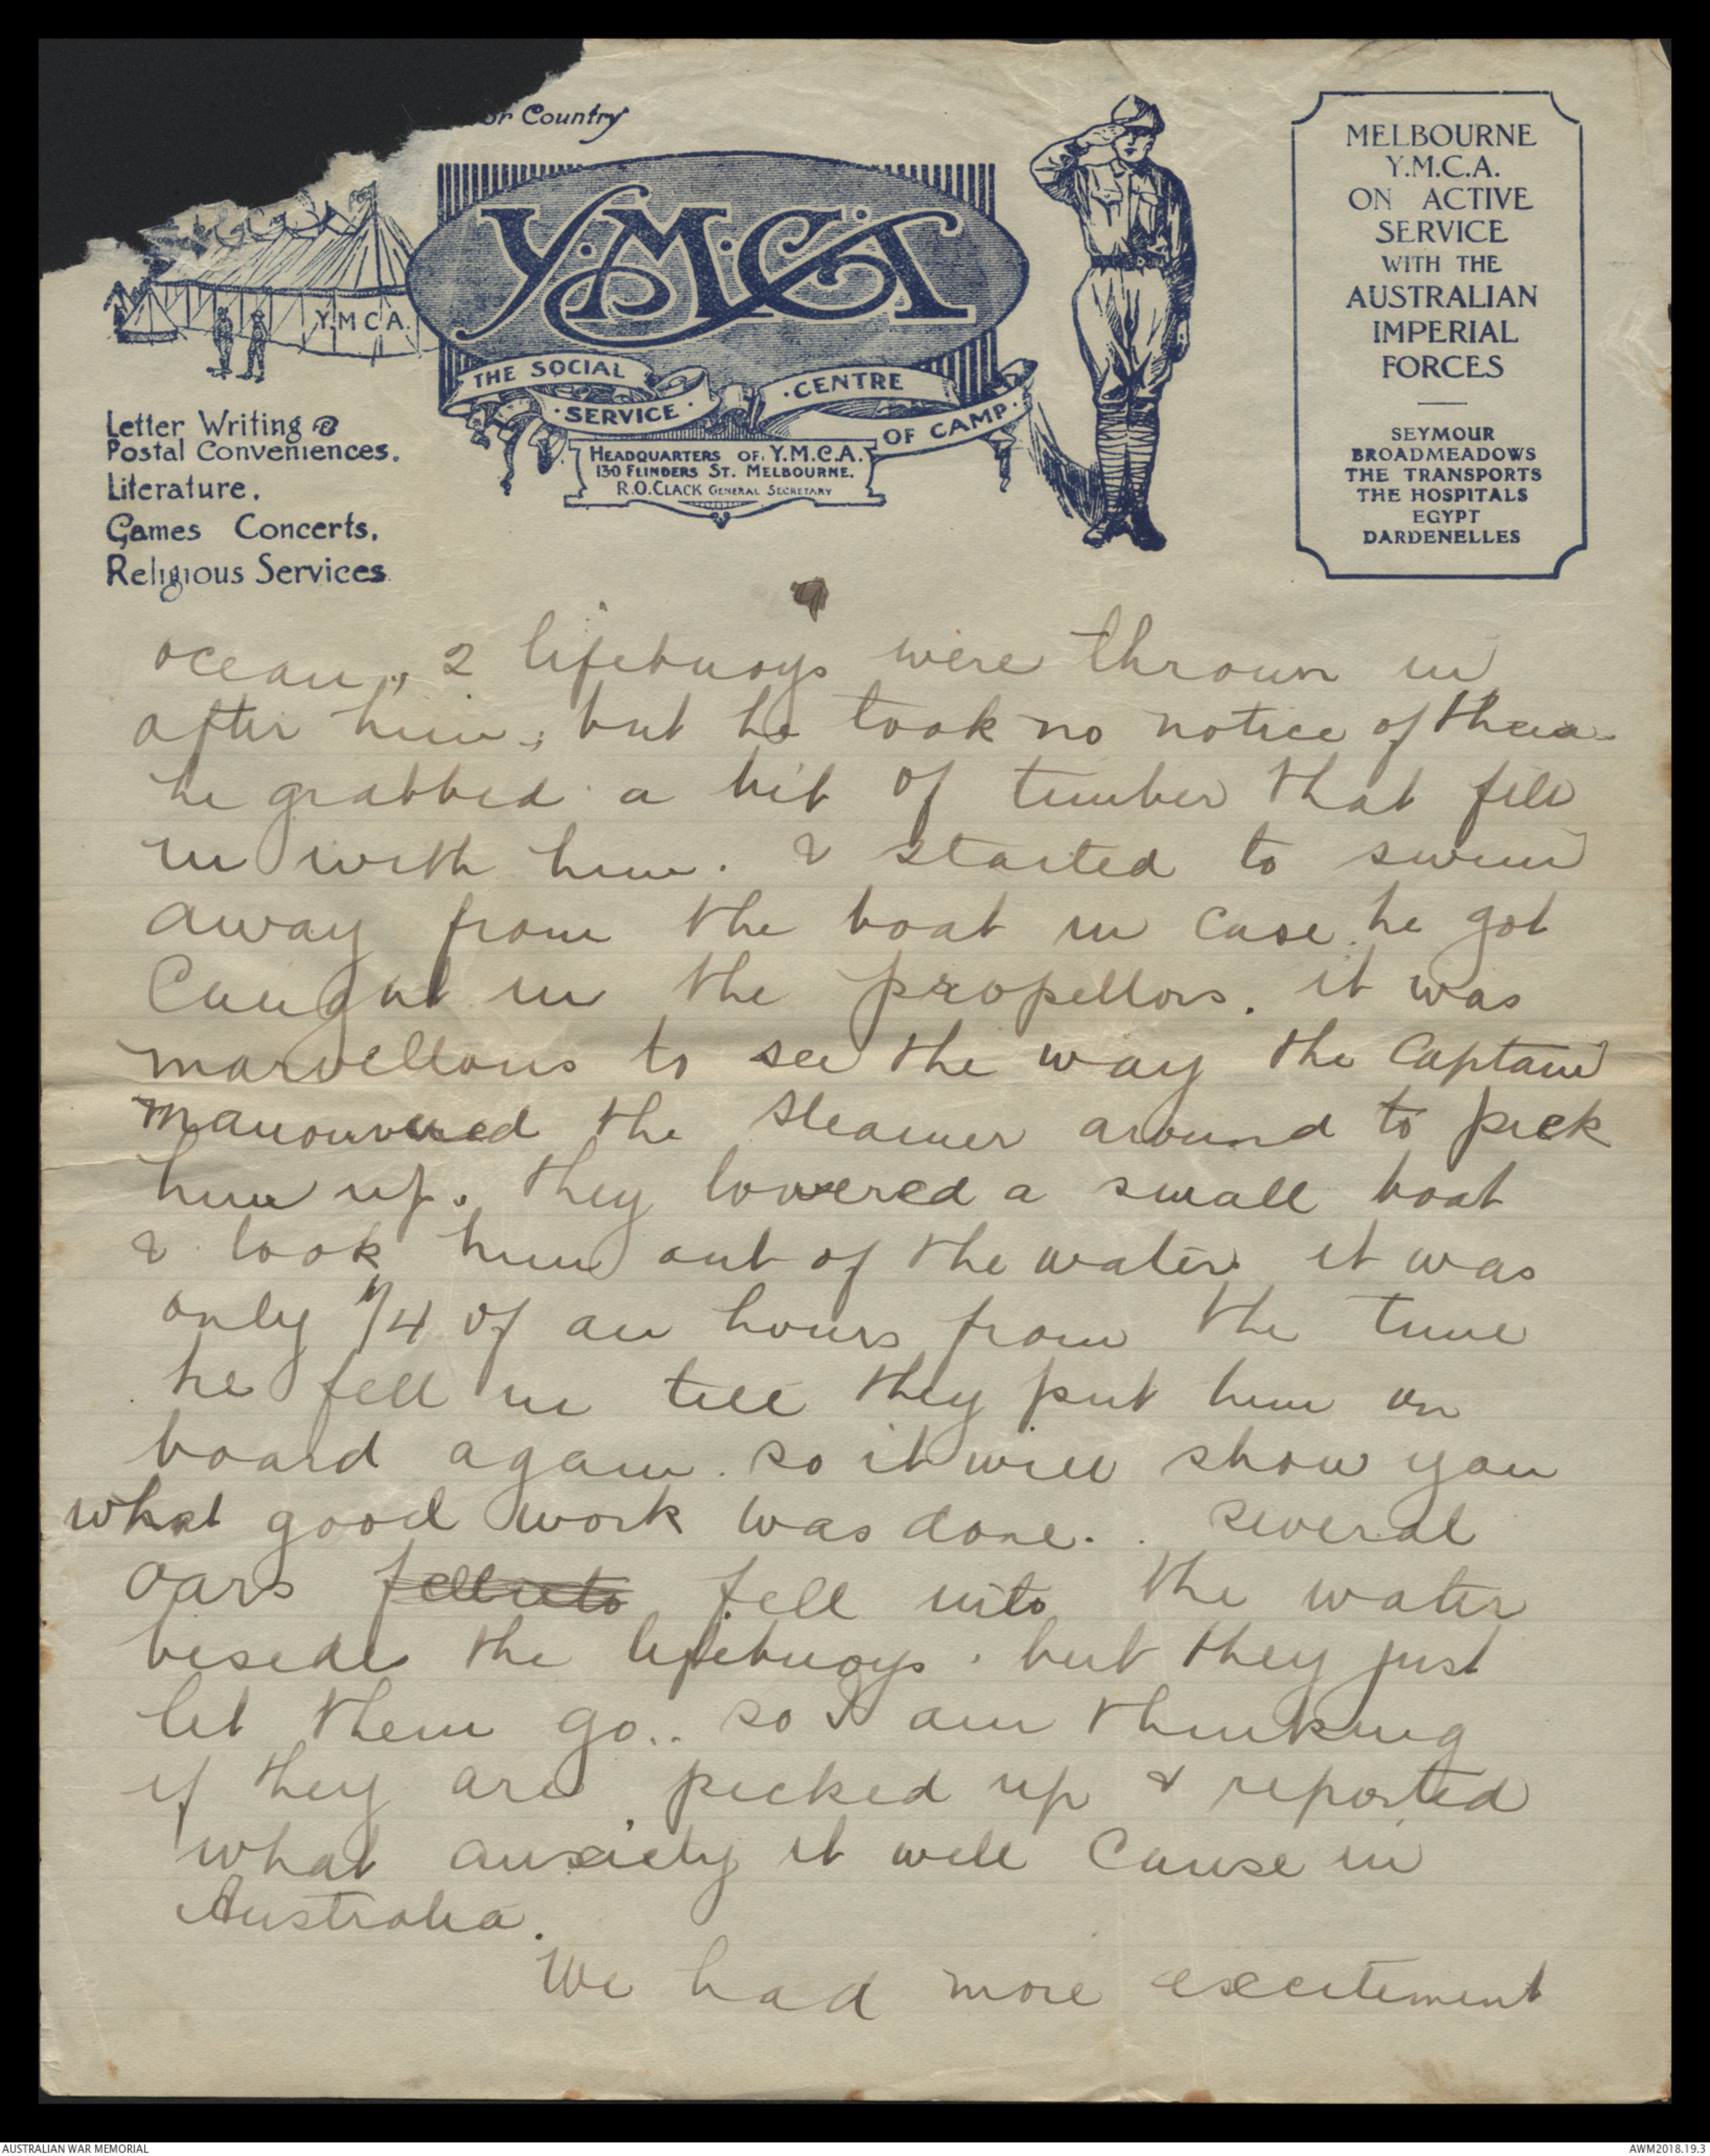 or Country
Y.M.C.A.
Y.M.C.A.
THE SOCIAL
SERVICE
CENTRE
OF CAMP.
HEADQUARTERS OF Y.M.C.A.
130 FLINDERS ST. MELBOURNE.
R.O.CLACK GENERAL SECRETARY
Letter Writing &
Postal Conveniences.
Literature.
Games Concerts.
Religious Services
MELBOURNE
Y.M.C.A.
ON ACTIVE
SERVICE
WITH THE
AUSTRALIAN
IMPERIAL
FORCES
SEYMOUR
BROADMEADOWS
THE TRANSPORTS
THE HOSPITALS
EGYPT
DARDENELLES
9
ocean, 2 lifebuoys were thrown in
after him, but he took no notice of them.
he grabbed a bit of timber that fell
in with him. & started to swim
away from the boat in case he got
Caught in the propellors. it was
marvellous to see the way the Captain
manouvered the steamer around to pick
him up. they lowered a small boat
& took him out of the water it was
only 1/4 of an hours from the time
he fell in till they put him on
board again. so it will show you
what good work was done. several
oars fell into fell into the water
beside the lifebuoys. but they just
let them go.. so I am thinking
if they are picked up & reported
what anxiety it will Cause in
Australia.
We had more excitement
AUSTRALIAN WAR MEMORIAL
AWM2018.19.3